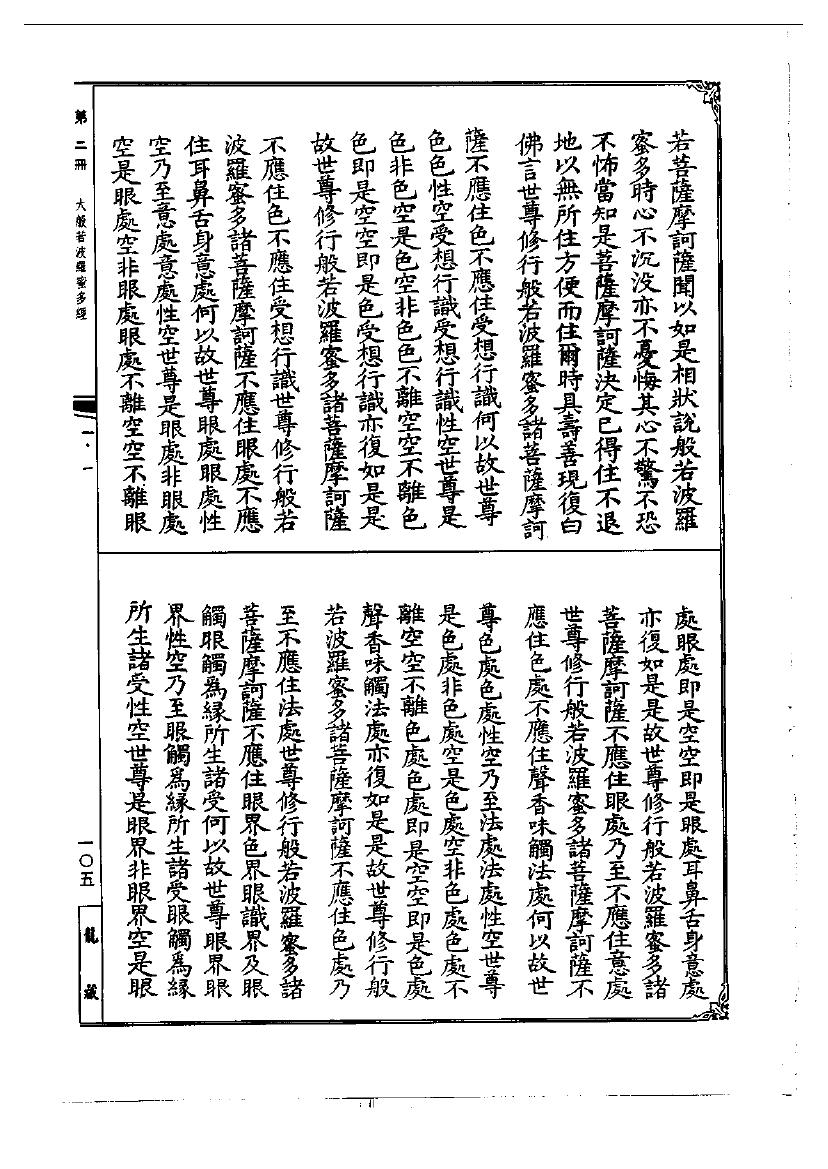 若菩薩摩訶薩聞以如是相狀說般若波羅
蜜多時心不沉没亦不憂悔其心不驚不恐
不怖當知是菩薩摩訶薩決定已得住不退
地以無所住方便而住爾時具壽善現復白
佛言世尊修行般若波羅蜜多諸菩薩摩訶
薩不應住色不應住受想行識何以故世尊
色色性空受想行識受想行識性空世尊是
色非色空是色空非色色不離空空不離色
色即是空空即是色受想行識亦復如是是
故世尊修行般若波羅蜜多諸菩薩摩訶薩
不應住色不應住受想行識世尊修行般若
波羅蜜多諸菩薩摩訶薩不應住眼處不應
住耳鼻舌身意處何以故世尊眼處眼處性
空乃至意處意處性空世尊是眼處非眼處
空是眼處空非眼處眼處不離空空不離眼
處眼處即是空空即是眼處耳鼻舌身意處
亦復如是是故世尊修行般若波羅蜜多諸
菩薩摩訶薩不應住眼處乃至不應住意處
世尊修行般若波羅蜜多諸菩薩摩訶薩不
應住色處不應住聲香味觸法處何以故世
尊色處色處性空乃至法處法處性空世尊
是色處非色處空是色處空非色處色處不
離空空不離色處色處即是空空即是色處
聲香味觸法處亦復如是是故世尊修行般
若波羅蜜多諸菩薩摩訶薩不應住色處乃
至不應住法處世尊修行般若波羅蜜多諸
菩薩摩訶薩不應住眼界色界眼識界及眼
觸眼觸爲緣所生諸受何以故世尊眼界眼
界性空乃至眼觸爲緣所生諸受眼觸爲緣
所生諸受性空世尊是眼界非眼界空是眼
第二冊 大般若波羅蜜多經
一·一
一〇五
龍藏